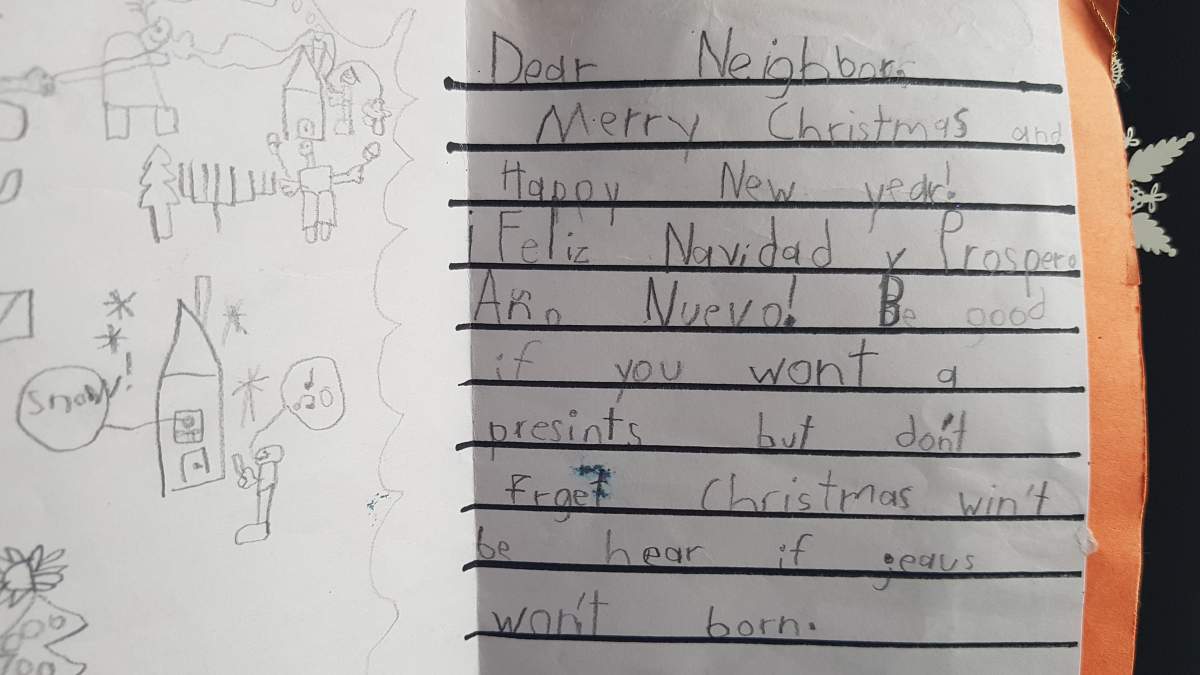 Dear Neighbors
Merry Christmas and
Happy New year!
¡Feliz Navidad y Prospero
Año Nuevo! Be good
if you wont a
presints but don't
Frget Christmas win't
be hear if jeaus
won't born.
Snow!